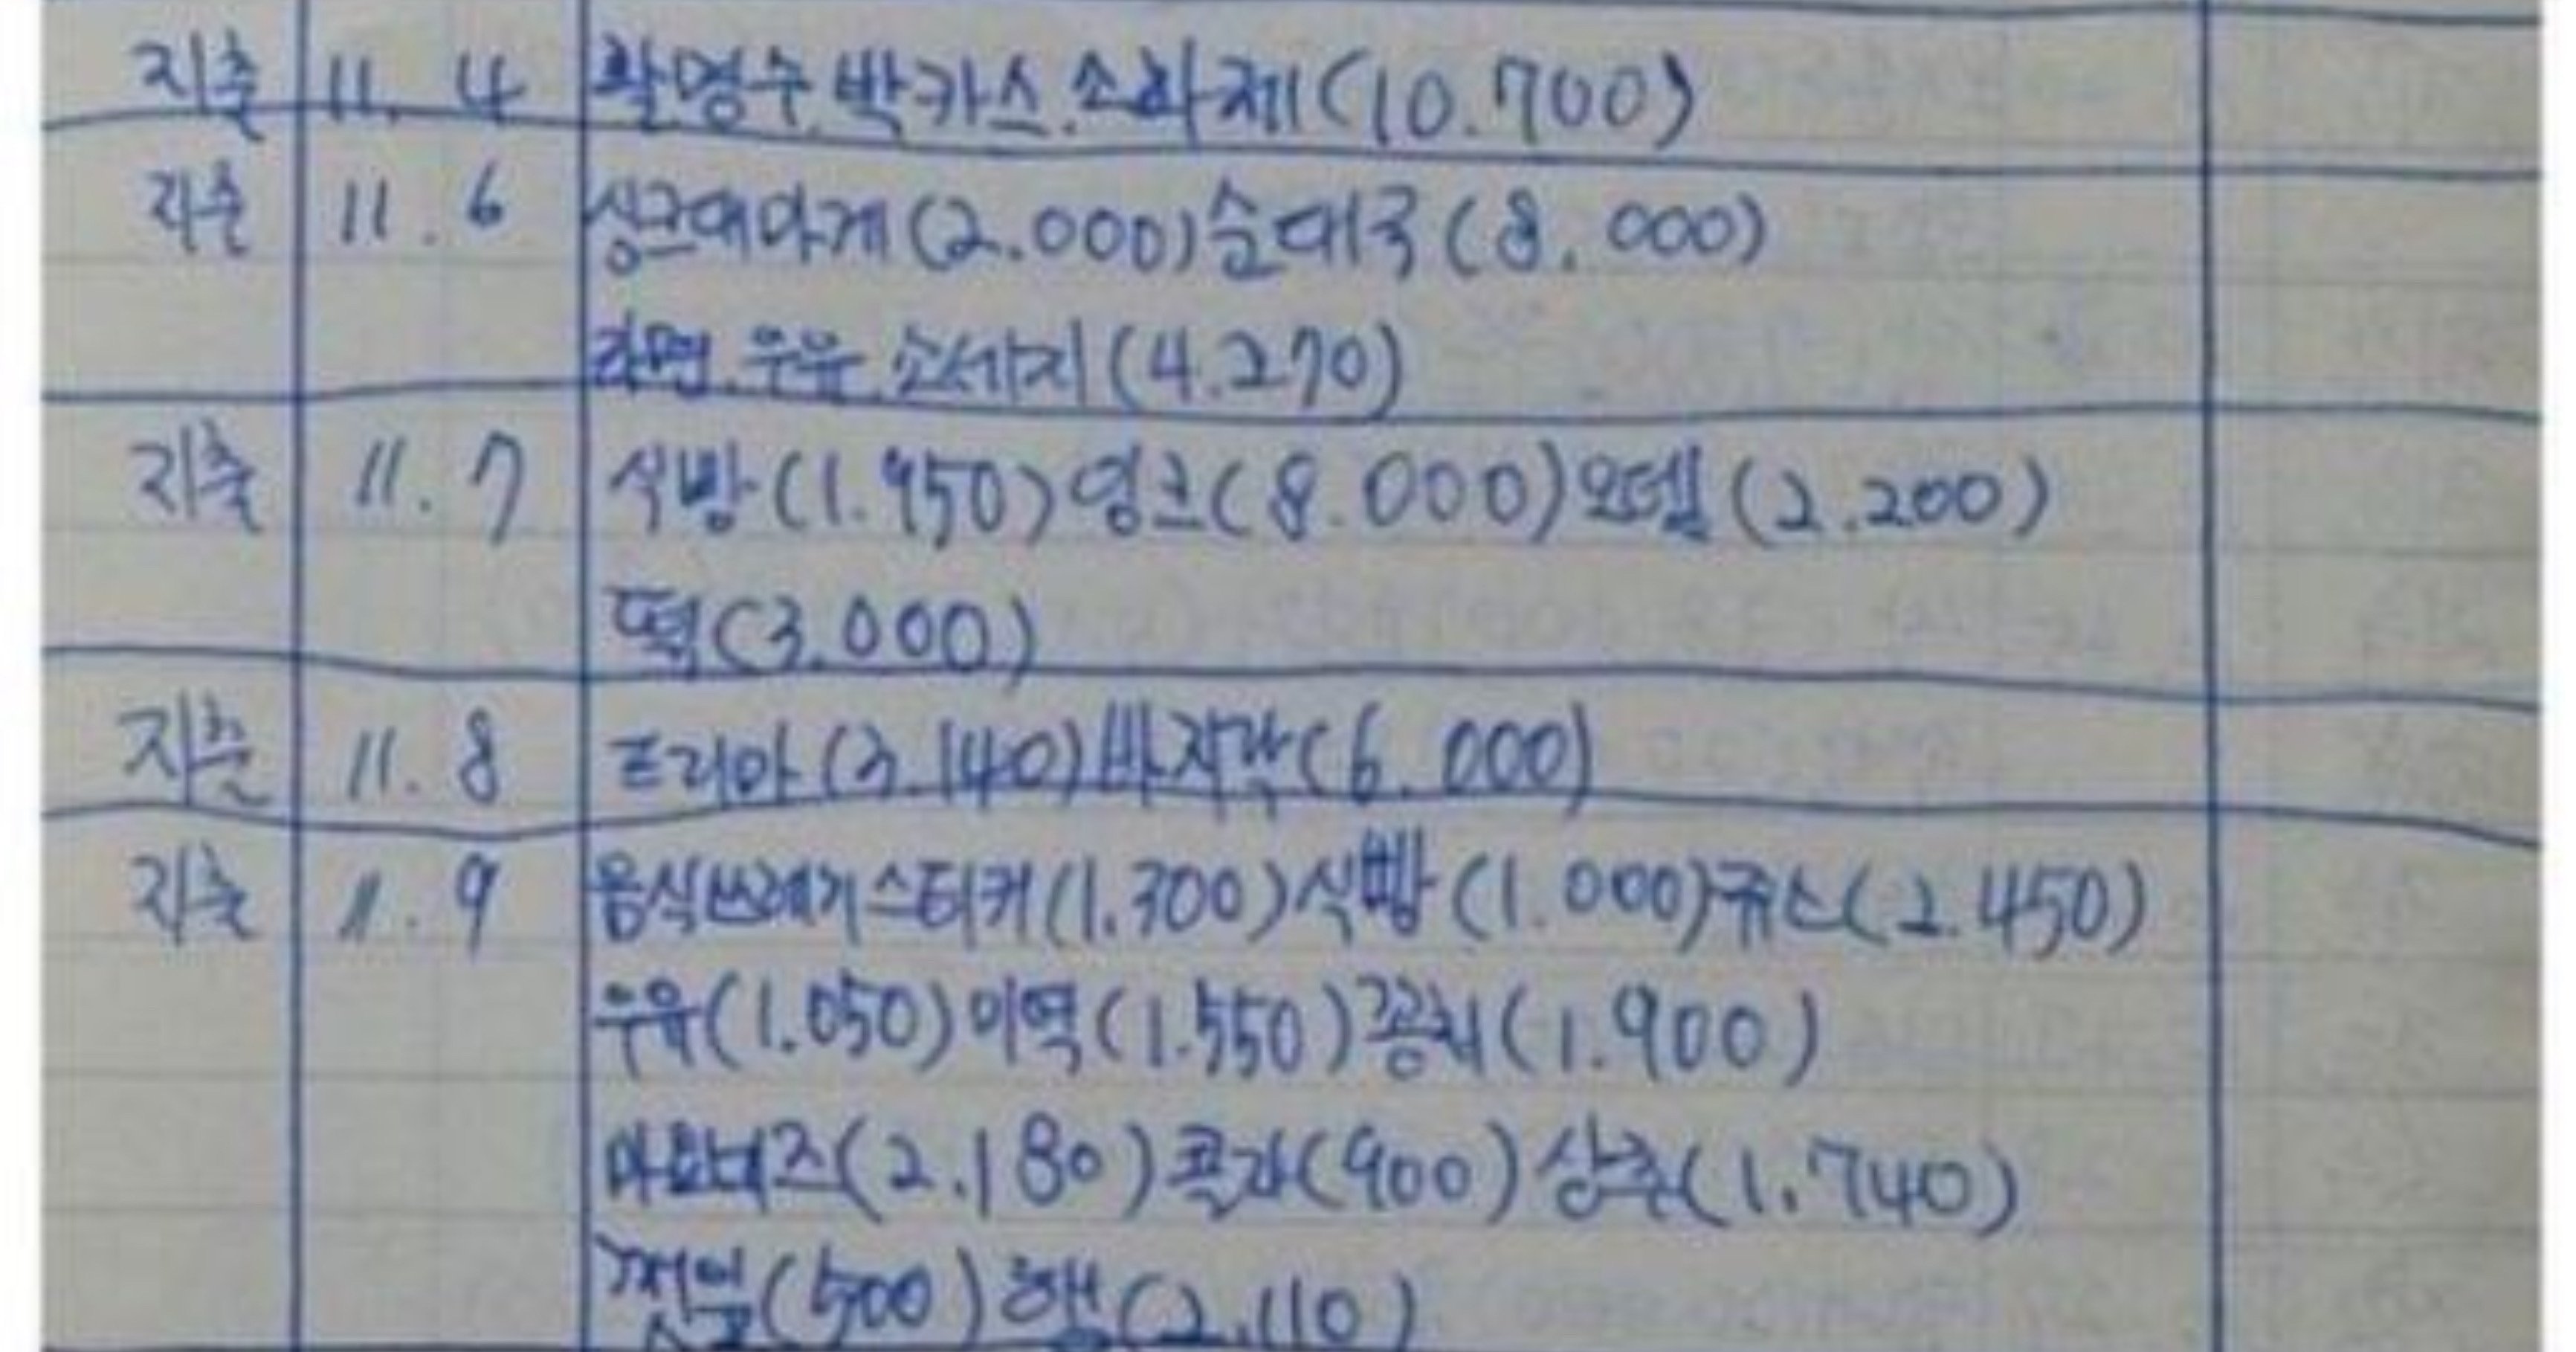 지출 11. 4 활명수.박카스.소화제(10.700)
지출 11. 6 싱크대마게(2.000)순대국(8.000)
라면.우유.소세지(4.270)
지출 11. 7 식빵(1.950)잉크(8.000)오뎅(2.200)
떡(3.000)
지출 11. 8 프리마(3.140)바지락(6.000)
지출 11. 9 음식쓰레기스티커(1.300)식빵(1.000)쥬스(2.450)
우유(1.050)미역(1.550)꽁치(1.900)
마요네즈(2.180)콜라(900)상추(1.740)
깻잎(500)햄(2.110)